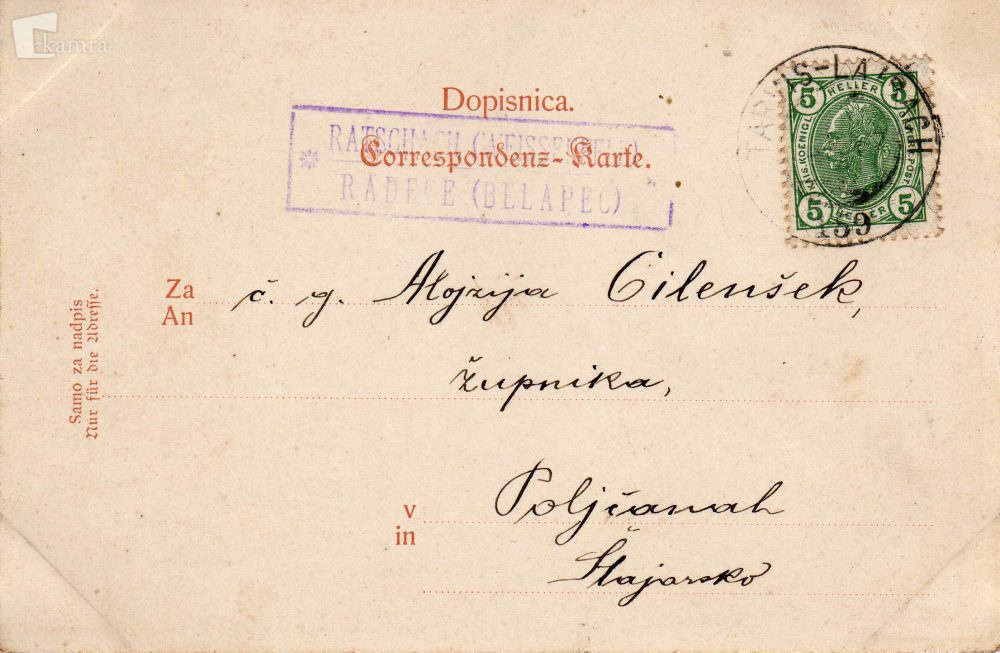 kamra
Dopisnica.
Correspondenz-Karte.
RATSCHACH (WEISSENFELS)
RADEČE (BELAPEČ)
TARVIS-LAIBACH
159
5 HELLER 5
KAIS. KOENIGL.
POST
5 HELLER 5
Samo za nadpis
Nur für die Adresse.
Za č. g. Alojzija Cilenšek,
An
župnika,
v Poljčanah
in
Štajarsko